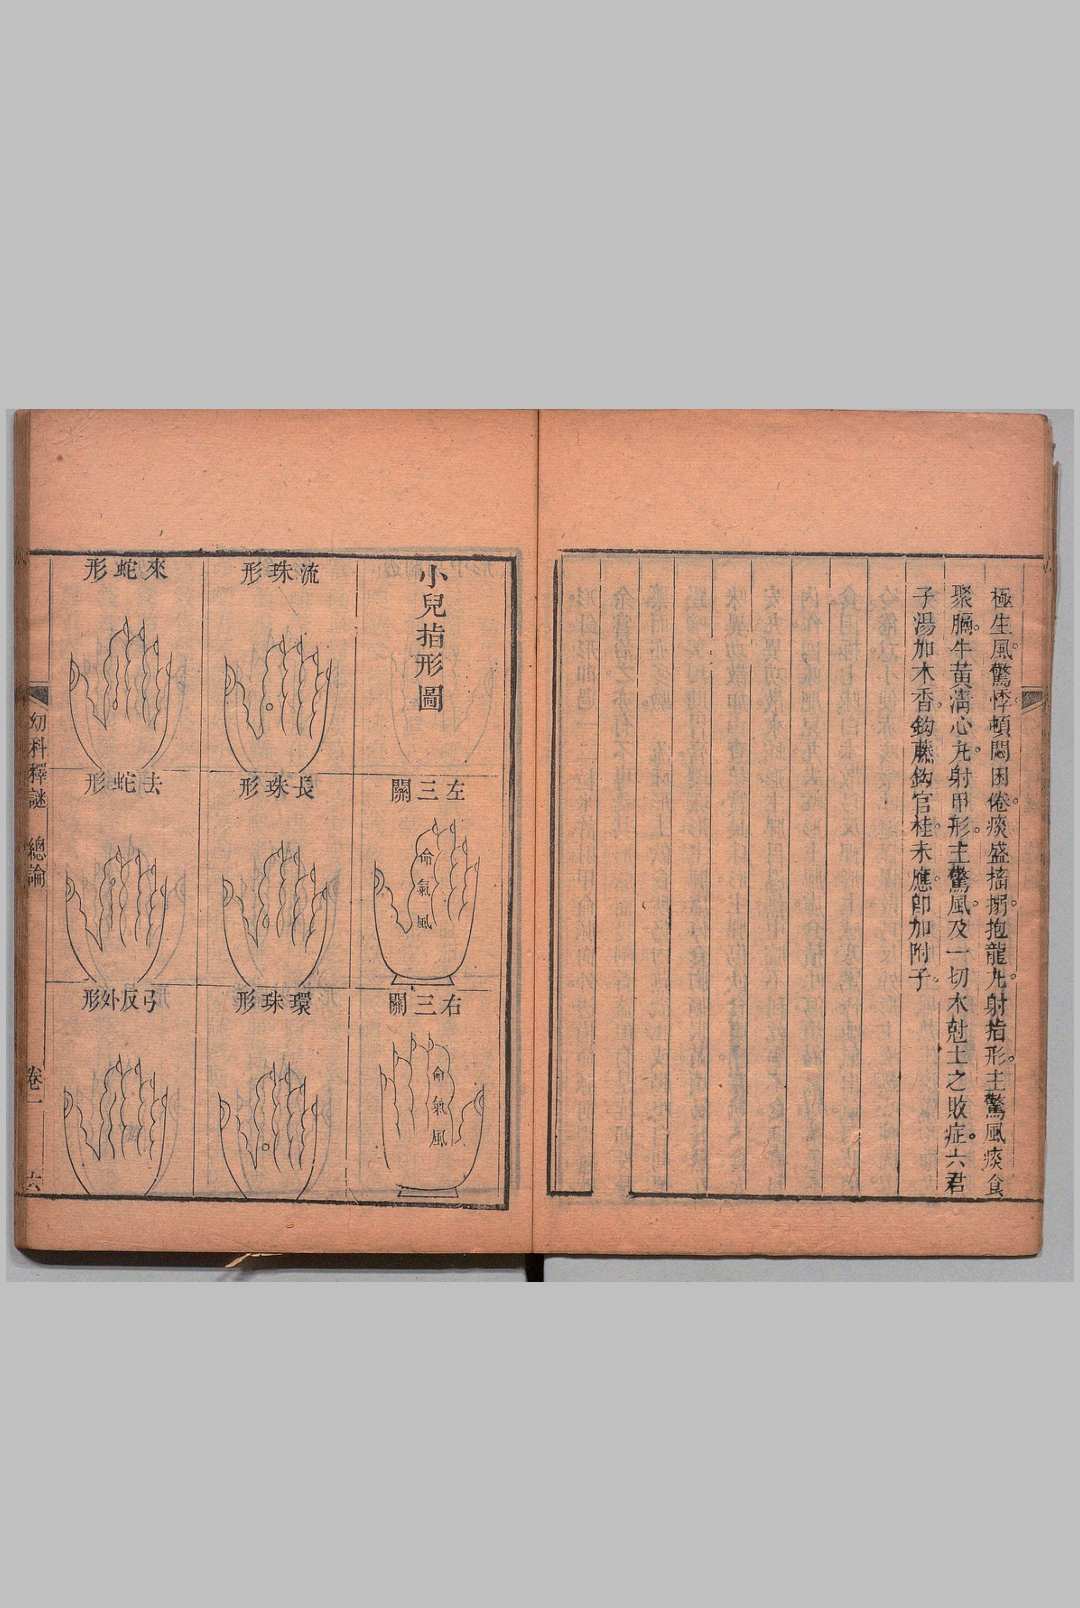 極生風驚悸頓悶困倦痰盛搐搦抱龍丸射指形主驚風痰食
聚膈牛黃清心丸射甲形主驚風及一切木尅土之敗症六君
子湯加木香鈎藤鈎官桂未應即加附子
小兒指形圖
左三關
命
氣
風
右三關
命
氣
風
流珠形
長珠形
環珠形
來蛇形
去蛇形
弓反外形
幼科釋謎 總論 卷一 六